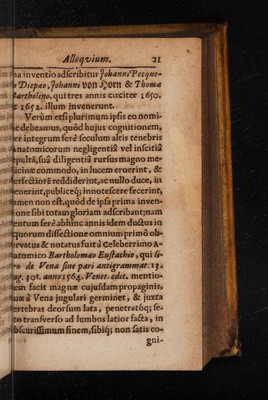 Alloquium. 21
na inventio adscribitur Johanni Pecque-
o Diepæo, Johanni von Horn & Thomæ
Bartholino, qui tres annis circiter 1650.
& 1652. illum invenerunt.
Verùm etsi plurimum ipsis eo nomi-
ne debeamus, quòd hujus cognitionem,
per integrum ferè seculum altis tenebris
Anatomicorum negligentiâ vel inscitiâ
sepultâ, suâ diligentiâ rursus magno me-
dicinæ commodo, in lucem eruerint, &
perfectiorẽ reddiderint, ac nullo duce, in
venerint, publicèq; innotescere fecerint,
tamen non est, quòd de ipsa prima inven-
tione sibi totam gloriam adscribant; nam
centum ferè abhinc annis idem ductus in
equorum dissectione omnium primò ob-
servatus & notatus fuit à Celeberrimo A-
natomico Bartholomæo Eustachio, qui li-
ro de Vena sine pari antigrammat. 13.
pag. 301. anno 1564. Venet. edit. mentio-
nem facit magnæ cujusdam propaginis,
quæ à Vena jugulari germinet, & juxta
vertebras deorsum lata, penetratóq; se-
pto transverso ad lumbos latior facta, in
obscurissimum finem, sibiq; non satis co-
gni-